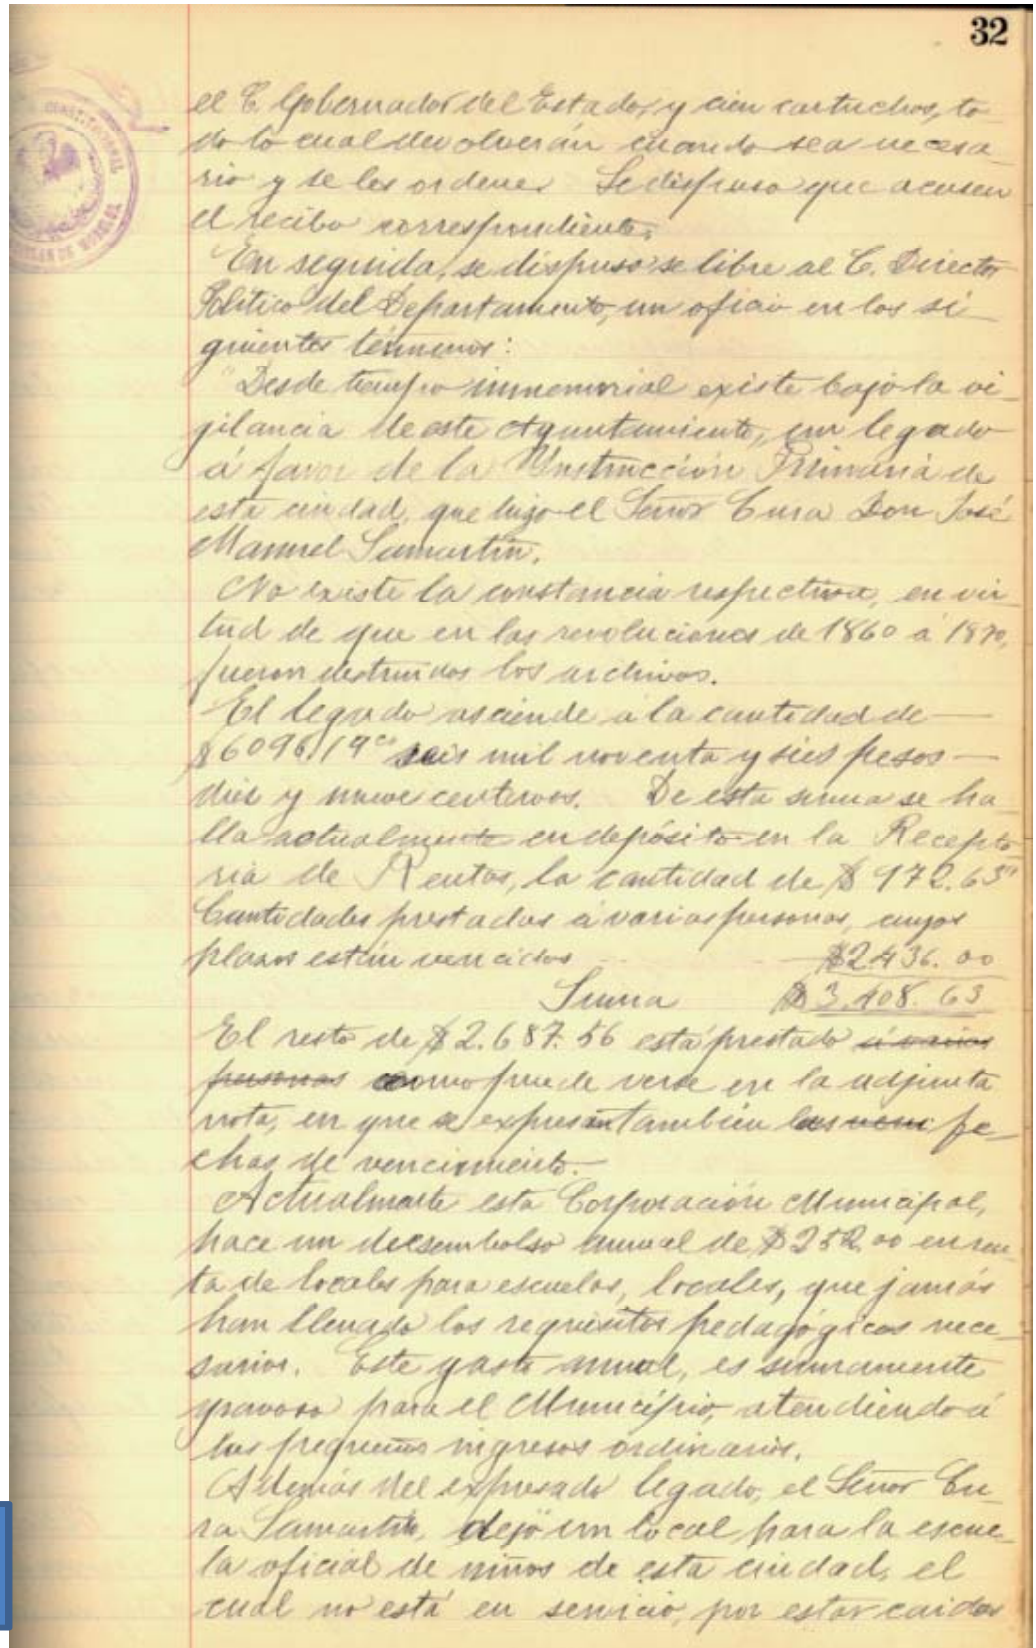 32
el C. Gobernador del Estado, y cien cartuchos, to
do lo cual devolverán cuando sea necesa
rio y se les ordene. Se dispuso que acusen
el recibo correspondiente.
En seguida, se dispuso se libre al C. Director
Político del Departamento, un oficio en los si
guientes términos:
"Desde tiempo inmemorial existe bajo la vi
jilancia de este Ayuntamiento, un legado
á favor de la Instrucción Primaria de
esta ciudad, que hizo el Señor Cura Don José
Manuel Samartín.
No existe la constancia respectiva, en vir
tud de que en las revoluciones de 1860 á 1870,
fueron destruidos los archivos.
El legado asciende á la cantidad de —
$6096.19cs seis mil noventa y seis pesos —
diez y nueve centavos. De esta suma se ha
lla actualmente en depósito en la Recepto
ria de Rentas, la cantidad de $972.63cs
Cantidades prestadas á varias personas, cuyos
plazos están vencidos $2.436.00
Suma $3.408.63
El resto de $2.687.56 está prestado á varias
personas como puede verse en la adjunta
nota, en que se expresan también las fe-
chas de vencimiento.—
Actualmente esta Corporación Municipal,
hace un desembolso anual de $252.00 en ren
ta de locales para escuelas, locales, que jamás
han llenado los requisitos pedagógicos nece
sarios. Este gasto anual, es sumamente
gravoso para el Municipio, atendiendo á
los pequeños ingresos ordinarios.
Además del expresado legado, el Señor Cu-
ra Samartín, dejó un local para la escue-
la oficial de niños de esta ciudad, el
cual no está en servicio, por estar caidos